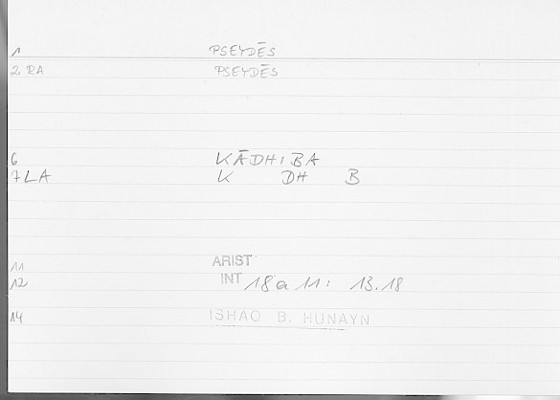 1 PSEYDĒS
2 RA PSEYDĒS
6 KĀDHIBA
7 LA K DH B
11 ARIST
12 INT 18a 11: 13.18
14 ISHAQ B. HUNAYN